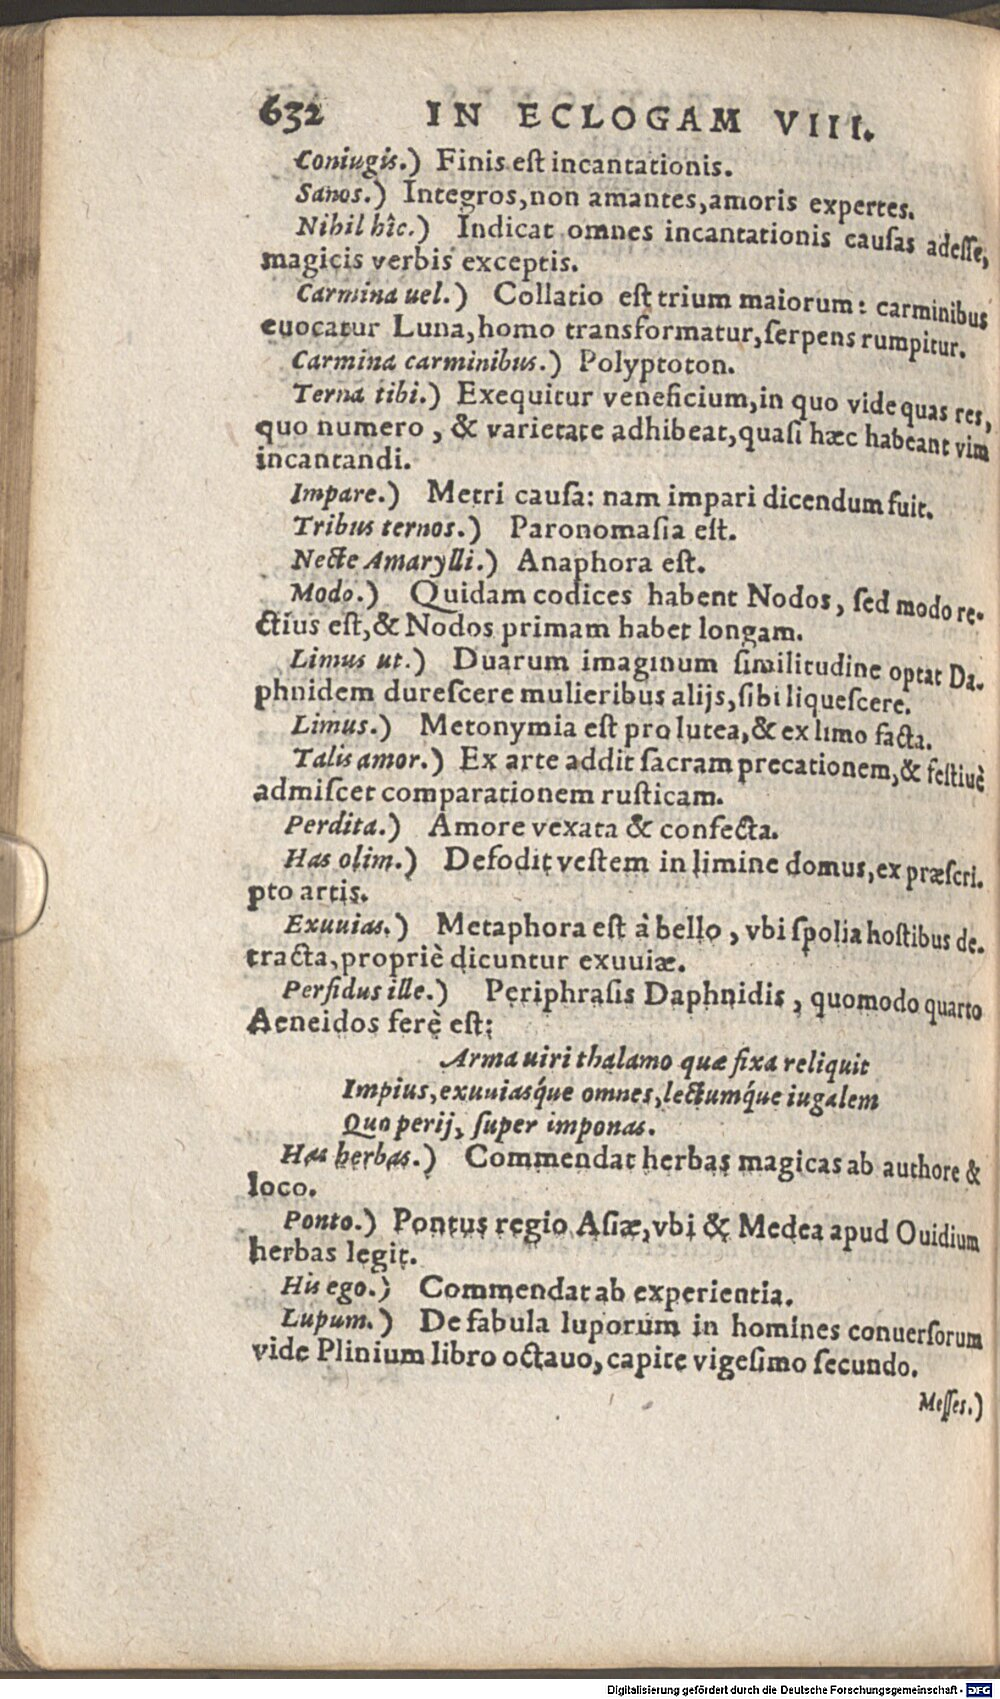 632 IN ECLOGAM VIII.
Coniugis.) Finis est incantationis.
Sanos.) Integros, non amantes, amoris expertes.
Nihil hîc.) Indicat omnes incantationis causas adesse,
magicis verbis exceptis.
Carmina uel.) Collatio est trium maiorum: carminibus
euocatur Luna, homo transformatur, serpens rumpitur.
Carmina carminibus.) Polyptoton.
Terna tibi.) Exequitur veneficium, in quo vide quas res,
quo numero, & varietate adhibeat, quasi hæc habeant vim
incantandi.
Impare.) Metri causa: nam impari dicendum fuit.
Tribus ternos.) Paronomasia est.
Necte Amarylli.) Anaphora est.
Modo.) Quidam codices habent Nodos, sed modo re-
ctius est, & Nodos primam habet longam.
Limus ut.) Duarum imaginum similitudine optat Da-
phnidem durescere mulieribus alijs, sibi liquescere.
Limus.) Metonymia est pro lutea, & ex limo facta.
Talis amor.) Ex arte addit sacram precationem, & festiuè
admiscet comparationem rusticam.
Perdita.) Amore vexata & confecta.
Has olim.) Defodit vestem in limine domus, ex præscri-
pto artis.
Exuuias.) Metaphora est à bello, vbi spolia hostibus de-
tracta, propriè dicuntur exuuiæ.
Perfidus ille.) Periphrasis Daphnidis, quomodo quarto
Aeneidos ferè est:
Arma uiri thalamo quæ fixa reliquit
Impius, exuuiasq́ue omnes, lectumq́ue iugalem
Quo perij, super imponas.
Has herbas.) Commendat herbas magicas ab authore &
loco.
Ponto.) Pontus regio Asiæ, vbi & Medea apud Ouidium
herbas legit.
His ego.) Commendat ab experientia.
Lupum.) De fabula luporum in homines conuersorum
vide Plinium libro octauo, capite vigesimo secundo.
Messes.)
Digitalisierung gefördert durch die Deutsche Forschungsgemeinschaft - DFG